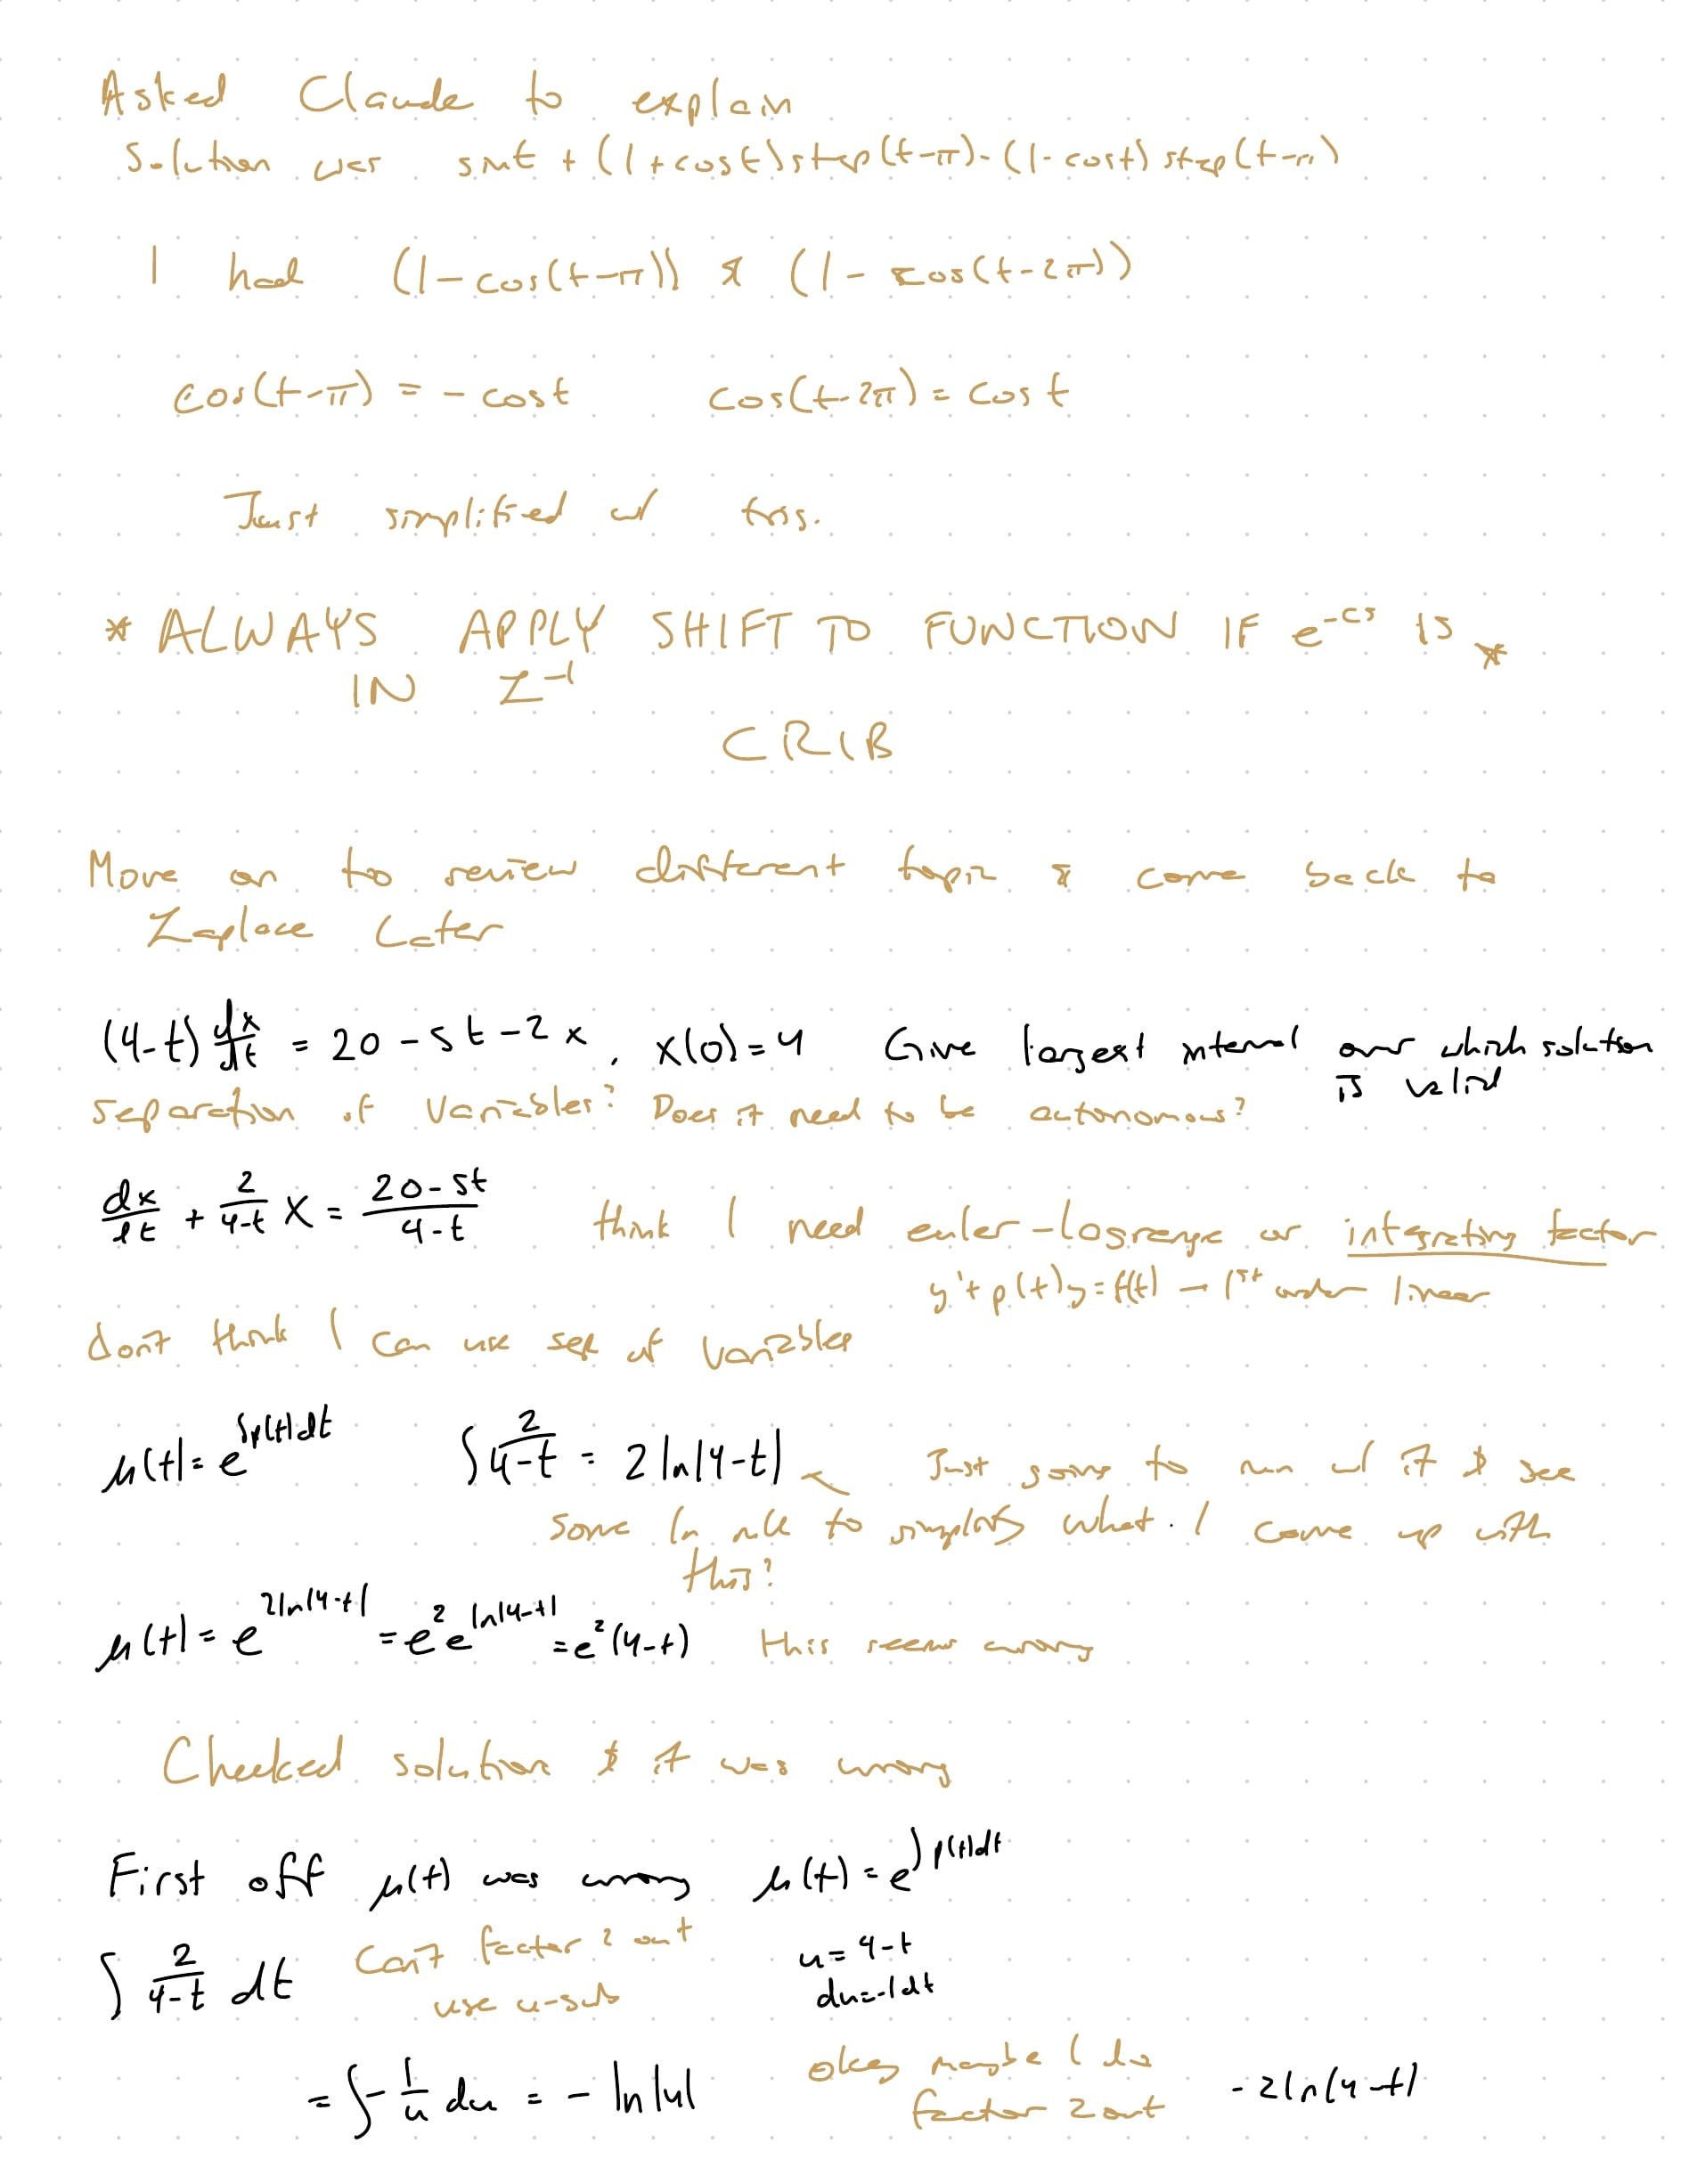 Asked Claude to explain
Solution was sint + (1+cost)step(t-π)-(1-cost) step(t-π)
I had (1-cos(t-π)) & (1-cos(t-2π))
cos(t-π) = -cost cos(t-2π) = cost
Just simplified w/ trig.
* ALWAYS APPLY SHIFT TO FUNCTION IF e^-cs IS *
IN L^-1
CRIB
Move on to review different topic & come back to
Laplace Later
(4-t) dx/dt = 20-5t-2x, x(0)=4 Give largest interval over which solution
is valid
Separation of Variables? Does it need to be autonomous?
dx/dt + 2/(4-t) x = (20-5t)/(4-t) think I need euler-lagrange or integrating factor
y'+p(t)y=f(t) → 1st order linear
don't think I can use sep of variables
μ(t)=e^∫p(t)dt ∫2/(4-t) = 2ln|4-t| Just going to run w/ it & see
some ln rule to simplify what I come up with
this?
μ(t)=e^2ln|4-t| = e^2 e^ln|4-t| = e^2(4-t) this seems wrong
Checked solution & it was wrong
First off μ(t) was wrong μ(t)=e^∫p(t)dt
∫ 2/(4-t) dt Can't factor 2 out u=4-t
use u-sub du=-1dt
= ∫-1/u du = -ln|u| okay maybe I do -2ln|4-t|
factor 2 out